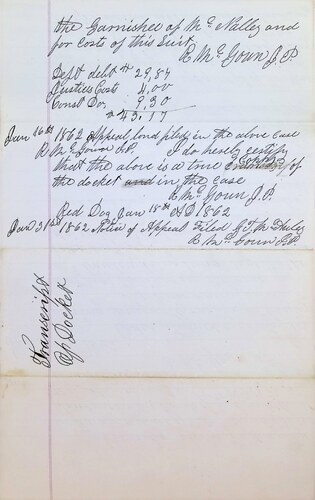 the Garnishee of Mc Nalley and
for Costs of this Suit
R Mc Goun J.P.
Deft debt $ 29,87
Justices Costs 4,00
Const Do. 9,30
$ 43,17
Jan 16th 1862 Appeal bond filed in the above case
R Mc Goun J.P. I do hereby certify
that the above is a true extract of
the docket and in the case
R Mc Goun J.P.
Red Dog Jan 18th AD 1862
Jan 31st 1862 Notice of Appeal Filed
R Mc Goun J.P.
Transcript
of Docket